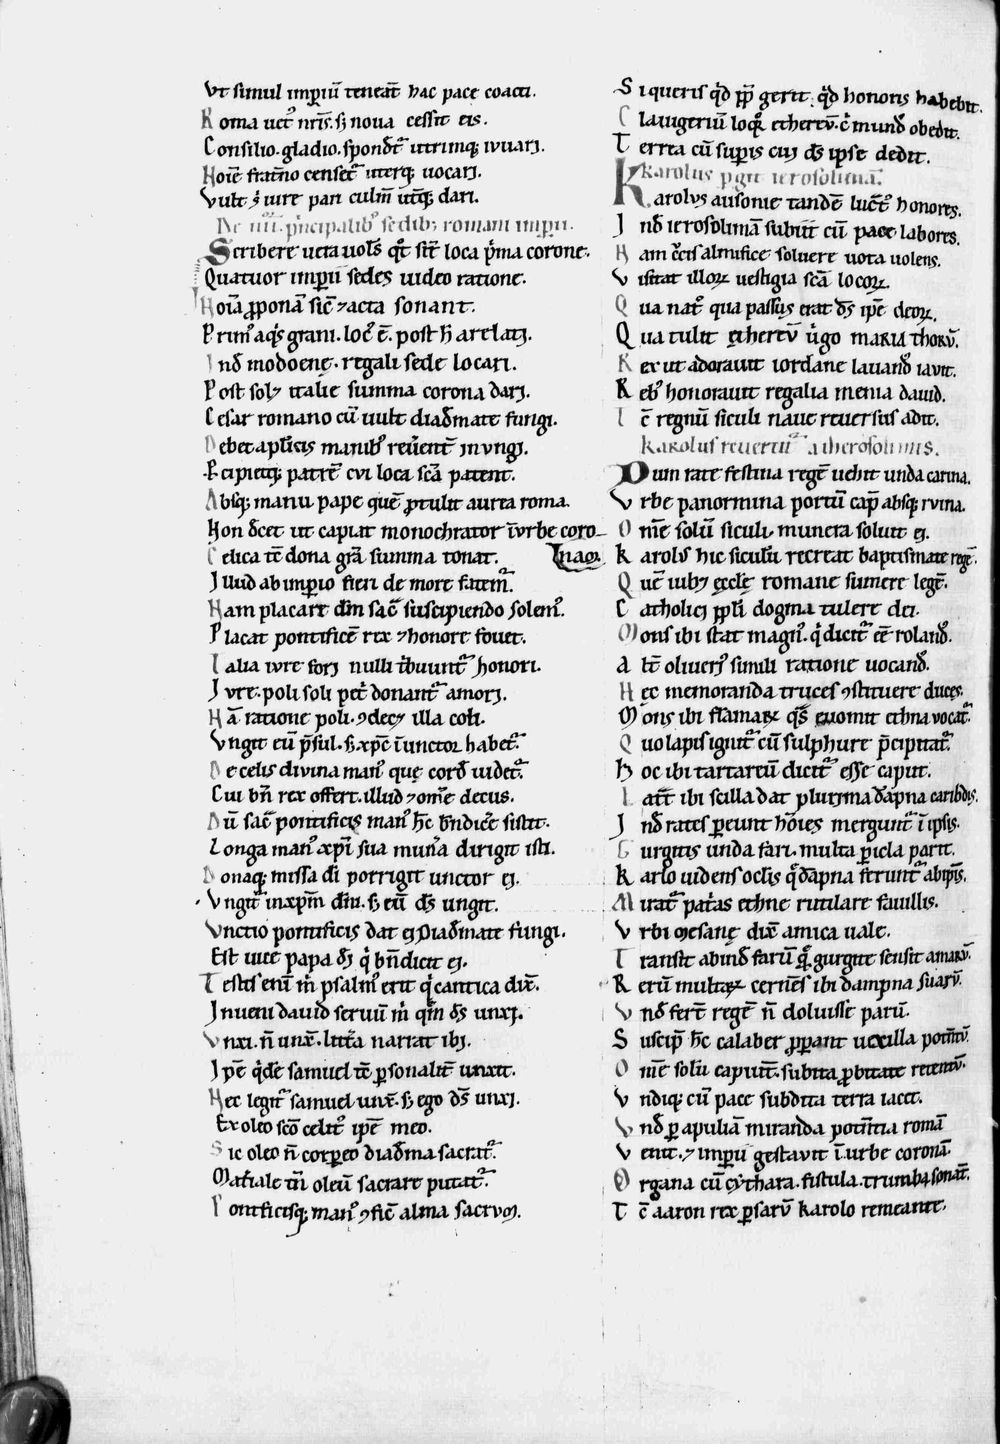 Vt simul imꝑiū teneāt hac pace coacti.
Roma uetꝰ nr̄is. sꝫ noua cessit eis.
Consilio. gladio. spondēt utrimqꝫ iuuari.
Noīe frat̄no censet᷑ uterqꝫ uocari.
Vult ꝫ iure pari culm̄ utīqꝫ dari.
De .iiii. p̄ncipalibꝰ sedibꝫ romani imꝑii.
Scribere uera uolēs qͦt st̄t loca p̄ma corone.
Quatuor imꝑii sedes uideo ratione.
Noīa ꝓponā sic̄ ⁊ acta sonant.
Primꝰ aqͥs grani. locꝰ ē. post h̄ arelati.
Ind̄ modoene. regali sede locari.
Post solꝫ italie summa corona dari.
Cesar romano cū uult diad̄mate fungi.
Debet apl̄icis manibꝰ reūent̄ inungi.
Pcipietqꝫ patrē cui loca sc̄a patent.
Absqꝫ manu pape quē ꝓtulit aurea roma.
Non dec̄t ut capiat monochrator ī urbe coro-
Celica tē dona gr̄a summa tonat. nam.
Illud ab imꝑio fieri de more fatem᷑.
Nam placare dm̄ sac̄ suscipiendo solemꝰ.
Placat pontificē rex ⁊ honore fouet.
Talia iure fori nulli tͥbuunt᷑ honori.
Iure. poli soli petͥ donant᷑ amori.
Nā ratione poli. ꝯdecꝫ illa coli.
Vngit eū p̄sul. sꝫ xp̄c īunctor habet᷑.
De celis diuina manꝰ que cord̄ uidet᷑.
Cui bn̄ rex offert. illud ⁊ om̄e decus.
Dū sac̄ pontificis manꝰ hc̄ bn̄dicē sistit.
Longa manꝰ xp̄i sua mun̄a dirigit isti.
Donaqꝫ missa di porrigit unctor ei.
Vngit᷑ in xp̄m dn̄i. sꝫ eū ds̄ ungit.
Vnctio pontificis dat ei diad̄mate fungi.
Est uice papa dī qͥ bn̄dicit ei.
Testis enī m̄ psalmꝰ erit qͥ cantica dix̄.
Inueni dauid seruū m̄ qm̄ ds̄ unxi.
Vnxi. n̄ unx̄. litt̄a narrat ibi.
Ip̄e qͥdē samuel tē ꝑsonalit̄ unxit.
Nec legit᷑ samuel unx̄. sꝫ ego ds̄ unxi.
Ex oleo sc̄o celitꝰ ip̄e meo.
Sic oleo n̄ corꝑeo diad̄ma sacrat᷑.
Mat̄iale tn̄ oleū sacrare putat᷑.
Pontificisqꝫ manꝰ ꝯfic̄ alma sacrum.
Si queris qͥd pp̄ gerit. qͥd honoris habebit.
Clauigeriū loqͦr ethereū. cͥ mund̄ obedit.
Terrea cū suꝑis cui ds̄ ipse dedit.
Karolus ꝑgit ierosolimā.
Karolus ausonie tandē luct̄ꝰ honores.
Ind̄ ierosolimā subiit cū pace labores.
Nam cͥcis almifice soluere uota uolens.
Visitat illoꝝ uestigia sc̄a locoꝝ.
Qua natꝰ qua passus erat ds̄ ip̄e deoꝝ.
Qua tulit ethereū uͥgo maria thorū.
Rex ut adorauit iordane lauand̄ lauit.
Rebꝰ honorauit regalia menia dauid.
Tc̄ regnū siculi naue reuersus adit.
Karolus reuertit᷑ a iherosolimis.
Dum rate festina regē uehit unda carina.
Vrbe panormina portū cap̄ absqꝫ ruina.
Om̄e solū siculi. munera soluit ei.
Karolus hic siculū recreat baptismate regē.
Quē iubꝫ eccle romane sumere legē.
Catholici pp̄li dogma tulere dei.
Mons ibi stat magnꝰ. qͥ dicit᷑ ee᷒ roland̄.
Alt̄ oliuerꝰ simili ratione uocand̄.
Hec memoranda truces ꝯstituere duces.
Mons ibi flāmaꝝ qͣs euomit ethna uocat᷑.
Quo lapis ignit᷑ cū sulphure p̄cipitat᷑.
Hoc ibi tartareū dicit᷑ esse caput.
Lat̄t ibi scilla dat plurima dāpna caribdis.
Ind̄ rates ꝑeunt hōies mergunt᷑ ī ipsis.
Gurgitis unda fari. multa ꝑicla parit.
Karlo uidens oclis qͥ dāpna ferunt᷑ abipsis.
Mirat᷑ patͥas ethne rutilare fauillis.
Vrbi mesane dix̄ amica uale.
Transit abind̄ farū qͦꝫ gurgite sensit amarū.
Rerū multaꝝ cernēs ibi dampna suarū.
Vnd̄ fert᷑ regē n̄ doluisse parū.
Suscip̄ hc̄ calaber ꝓꝑant uexilla potēntū.
Om̄e solū capiūt. subita ꝓbitate retentū.
Vndiqꝫ cū pace subdita terra iacet.
Vnd̄ ꝑ apuliā miranda potētia romā
Venit. ⁊ imꝑii gestauit ī urbe coronā.
Organa cū cythara. fistula. trumba sonāt.
Tc̄ aaron rex ꝑsarū karolo remeante.